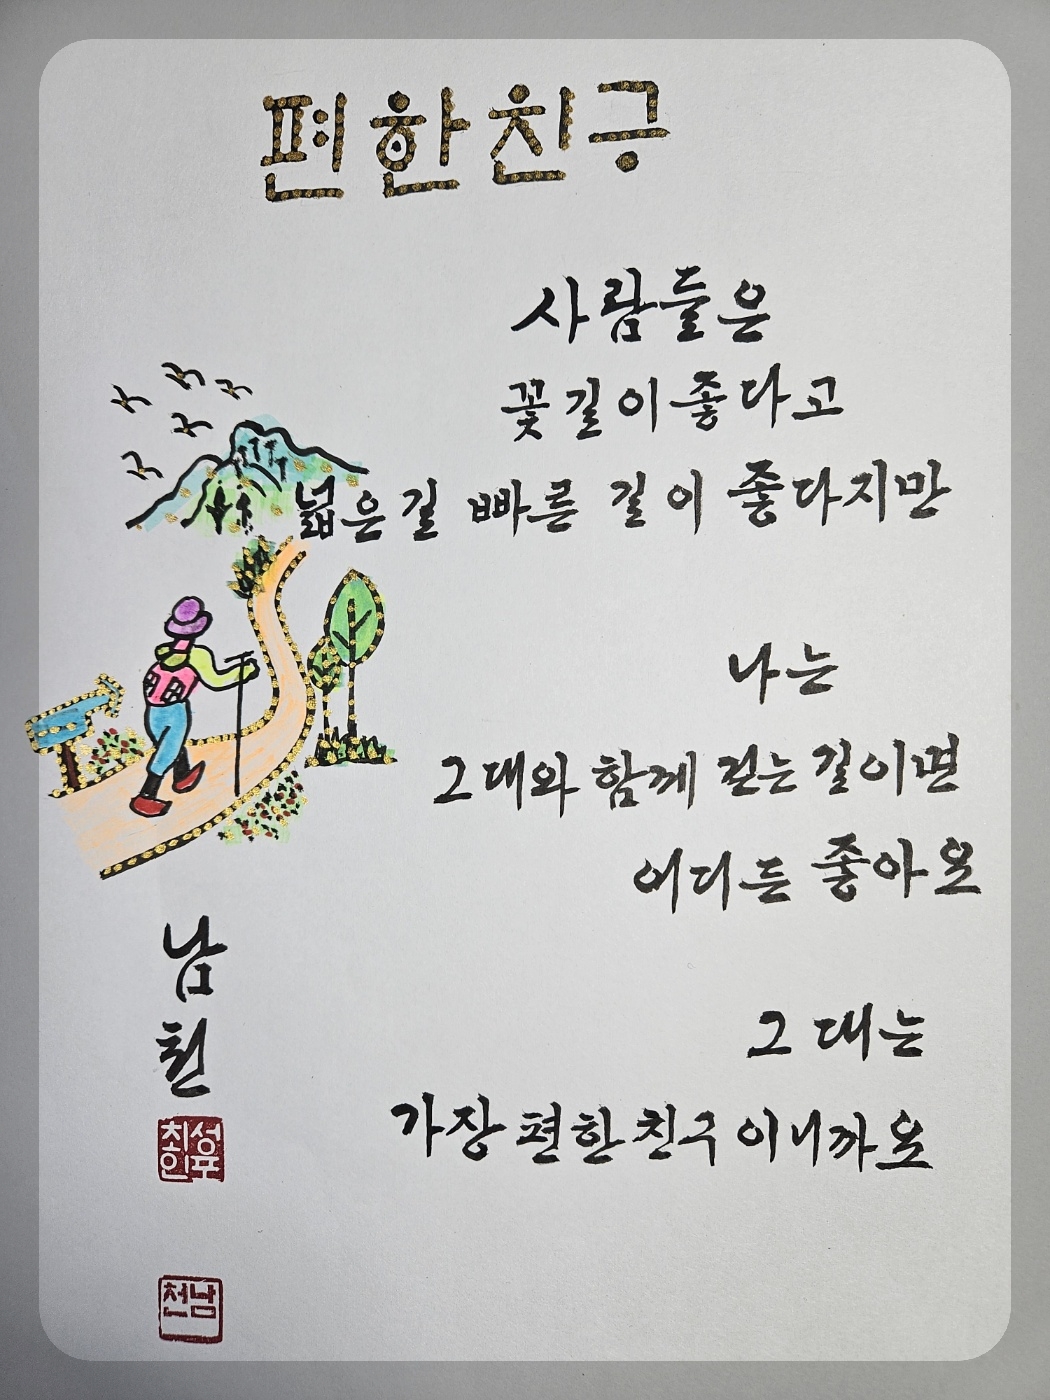 편한친구
사람들은
꽃길이 좋다고
넓은 길 빠른 길이 좋다지만
나는
그대와 함께 걷는 길이면
어디든 좋아요
그대는
가장 편한 친구이니까요
남
천
천남